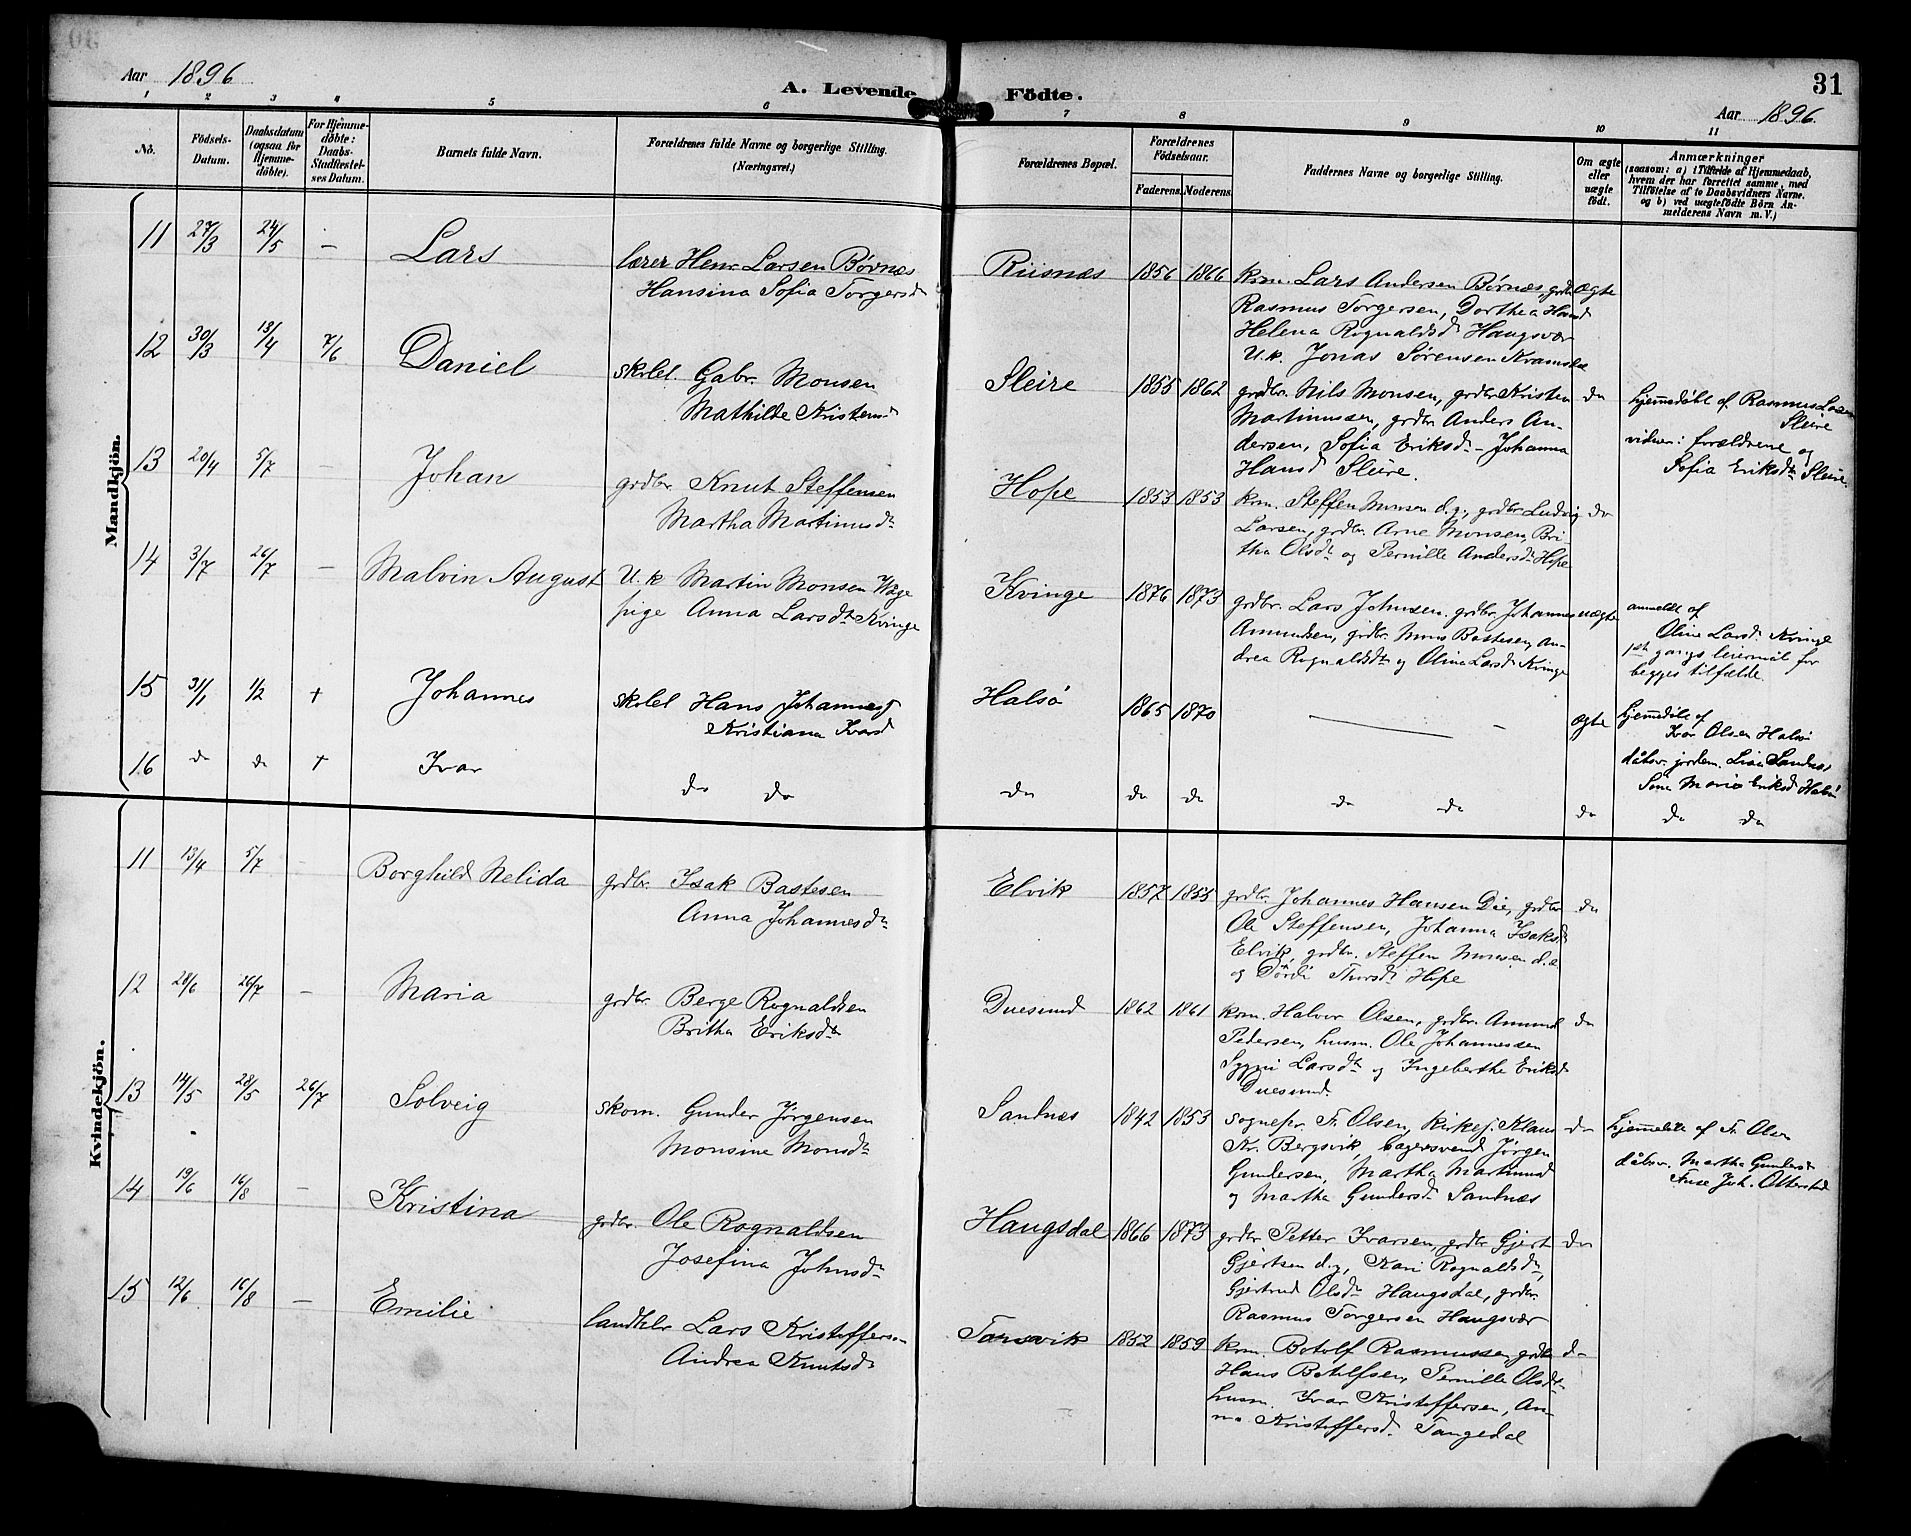 Aar 1896
A. Levende Födte.
31
Aar 1896.
1 2 3 4 5 6 7 8 9 10 11
No.
Födsels-Datum.
Daabsdatum (ogsaa for Hjemme-döbte).
For Hjemme-döbte: Daabs-Stadfæstel-ses Datum.
Barnets fulde Navn.
Forældrenes fulde Navne og borgerlige Stilling. (Næringsvei.)
Forældrenes Bopæl.
Forældrenes Födselsaar.
Faderens. Moderens.
Faddernes Navne og borgerlige Stilling.
Om ægte eller uægte födt.
Anmærkninger
(saasom: a) i Tilfælde af Hjemmedaab,
hvem der har forrettet samme, med
Tilföielse af to Daabsvidners Navne.
og b) ved uægtefödte Börn An-
melderens Navn m. V.)
Mandkjön.
11 27/3 24/5 — Lars
lærer Henr. Larsen Børnæs
Hansina Sofia Torgersd
Riisnæs 1856 1866
krm. Lars Andersen Børnæs, grdbr ægte
Rasmus Torgersen, Dorthea Hansd
Helena Rognaldsd Haugsvær
U.k. Jonas Sørensen
12 30/3 13/4 7/6 Daniel
skolel. Gabr. Monsen
Mathilde Kristensd
Sleire 1855 1862
grdbr. Nils Monsen, grdbr Kristen do
Martinussen, grdbr Anders An-
dersen, Sofia Eriksd - Johanna
Hansd Sleire.
hjemmedøbt af Rasmus
Sleire
vidner: forældrene og
Sofia Eriksdtr Sleire.
13 20/4 5/7 — Johan
grdbr. Knut Steffensen
Martha Martinusdtr
Hope 1853 1853
krm. Steffen Monsen d.y., grdbr Ludvig do
Larsen, grdbr. Arne Monsen, Bri-
tha Olsdt og Pernille Andersdt Hope
14 3/7 26/7 — Malvin August
U.k Martin Monsen Wåge
pige Anna Larsdtr Kvinge
Kvinge 1876 1873
grdbr. Lars Johnsen. grdbr. Johannes uægte
Amundsen, grdbr. Mons Bastesen, An-
drea Rognaldsdtr og Olina Larsd Kvinge
anmeldt af
Oline Larsd. Kvinge
1ste gangs leiermål for
begges tilfælde.
15 31/1 1/2 + Johannes
skolel Hans Johannes
Kristiana Ivarsd
Halsø 1865 1870 — ægte
hjemmedøbt af
Ivar Olsen Halsø
dåbsv. jordem. Lisa Sandnæs
Maria Eriksd Halsø
16 do do + Ivar
do do
do do do do do do
do do
Kvindekjön.
11 13/4 5/7 — Borghild Nelida
grdbr. Isak Bastesen
Anna Johannesdtr
Elvik 1857 1855
grdbr. Johannes Hansen Die, grdbr do
Ole Steffensen, Johanna Isaksd
Elvik, grdbr. Steffen Monsen d.e.
og Dordi Thorsdt Hope
12 28/6 26/7 — Maria
grdbr. Berge Rognaldsen
Britha Eriksdtr
Duesund 1862 1861
krm. Halvor Olsen, grdbr. Amund do
Pedersen, husm. Ole Johannessen
Larsdt og Ingeberthe Eriksd
Duesund.
13 14/5 28/5 26/7 Solveig
skom. Gunder Jørgensen
Monsine Monsdtr
Sandnæs 1842 1853
sognepr Fr. Olsen, kirkesj. Klaus do
Kr. Bergsvik, bagersvend Jørgen
Gundersen, Martha Martinusd
og Martha Gundersdt Sandnæs
hjemmedøbt af Fr. Olsen
dåbsv. Martha Gundersd
14 19/6 16/8 — Kristina
grdbr. Ole Rognaldsen
Josefina Johnsdtr
Haugsdal 1866 1873
grdbr Petter Ivarsen, grdbr Gjert do
Gjertsen d.y, Kari Rognaldsdt,
Gjertrud Olsdt Haugsdal, grdbr.
Rasmus Torgersen Haugsvær
15 12/6 16/8 — Emilie
landhdlr Lars Kristoffersen
Andrea Knutsdtr
Tansvik 1852 1859
krm. Botolf Rasmussen, grdbr do
Hans Botolfsen, Pernille Olsdtr
husm. Ivar Kristoffersen, An-
na Kristoffersd. Tangedal